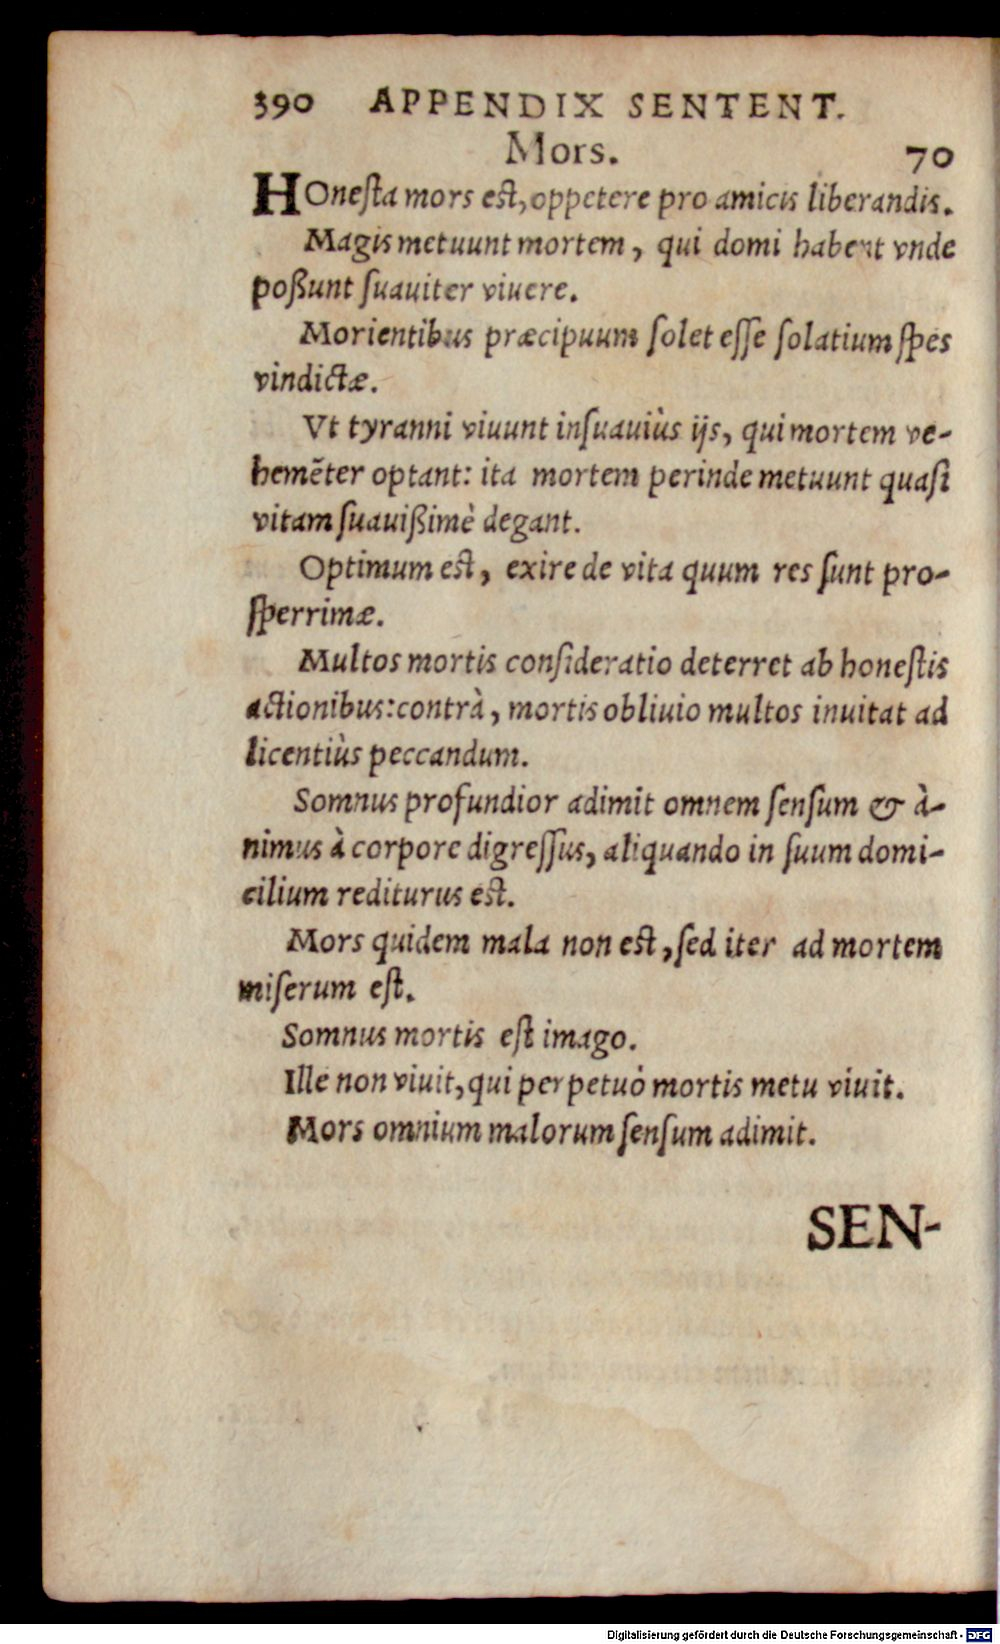 390 APPENDIX SENTENT.
Mors. 70
HOneſta mors est, oppetere pro amicis liberandis.
Magis metuunt mortem, qui domi habent vnde
poßunt ſuauiter viuere.
Morientibus præcipuum ſolet eſſe ſolatium ſpes
vindictæ.
Vt tyranni viuunt inſuauiùs ijs, qui mortem ve-
hemẽter optant: ita mortem perinde metuunt quaſi
vitam ſuauißimè degant.
Optimum est, exire de vita quum res ſunt pro-
ſperrimæ.
Multos mortis conſideratio deterret ab honeſtis
actionibus: contrà, mortis obliuio multos inuitat ad
licentiùs peccandum.
Somnus profundior adimit omnem ſenſum & à-
nimus à corpore digreſſus, aliquando in ſuum domi-
cilium rediturus est.
Mors quidem mala non est, ſed iter ad mortem
miſerum eſt.
Somnus mortis eſt imago.
Ille non viuit, qui perpetuò mortis metu viuit.
Mors omnium malorum ſenſum adimit.
SEN-
Digitalisierung gefördert durch die Deutsche Forschungsgemeinschaft - DFG